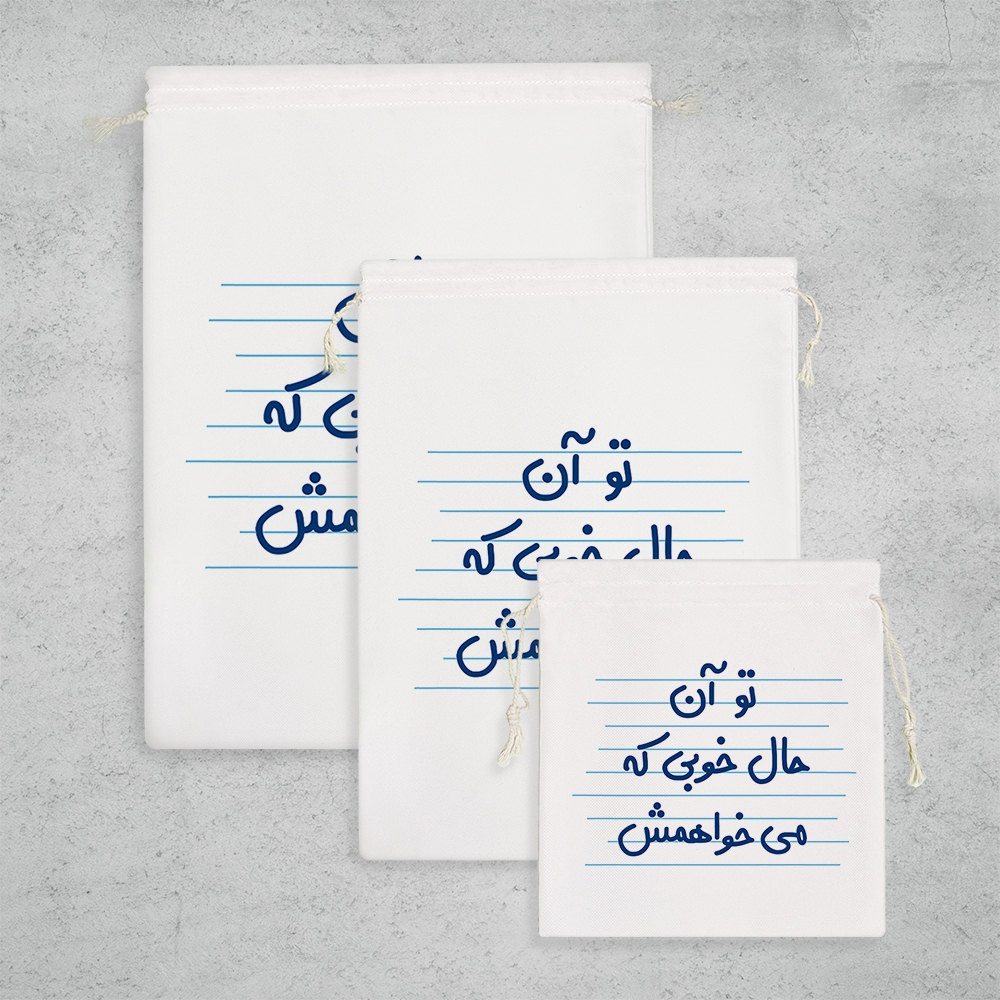 تو آن
حال خوبی که
می خواهمش
تو آن
حال خوبی که
مش
که
مش